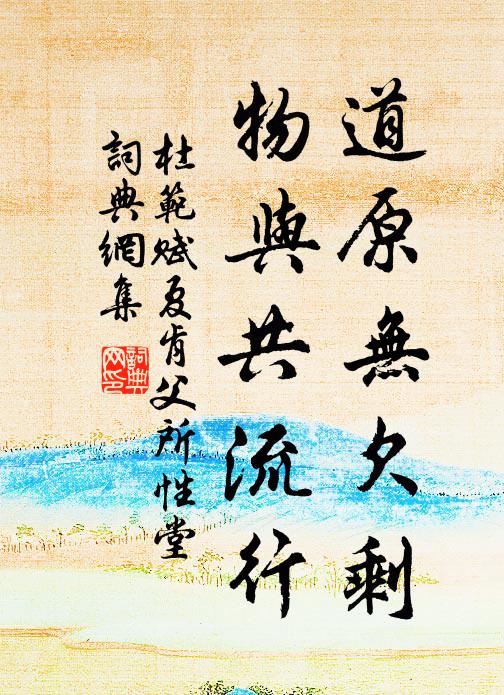 道原無欠剩
物與共流行
杜範賦夏肯父所性堂
詞典網集
詞典网印